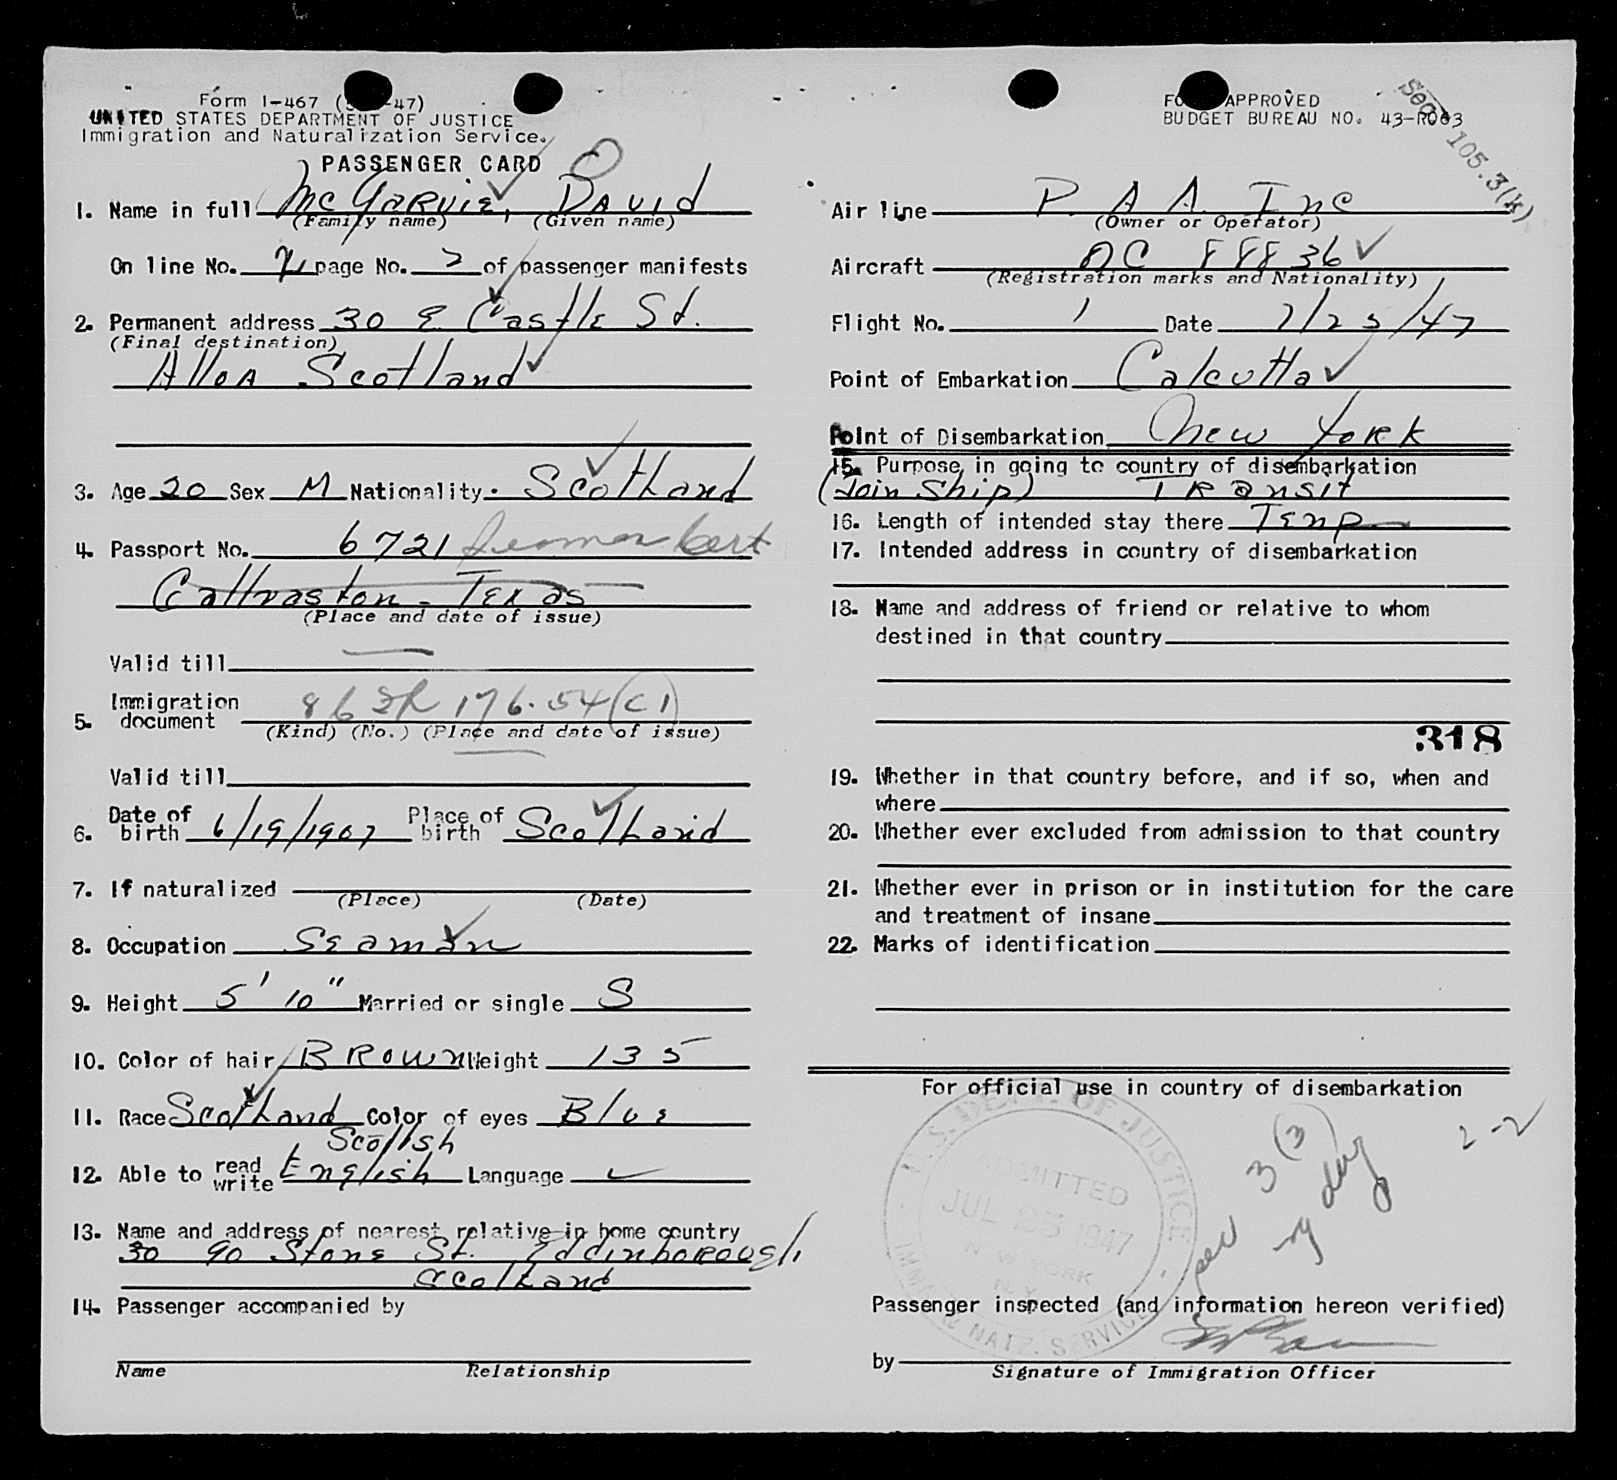 Form I-467 ( -47)
UNITED STATES DEPARTMENT OF JUSTICE
Immigration and Naturalization Service.
PASSENGER CARD
1. Name in full McGarvie, David
(Family name) (Given name)
On line No. page No. 2 of passenger manifests
2. Permanent address 30 E Castle St.
(Final destination)
Alloa Scotland
3. Age 20 Sex M Nationality Scotland
4. Passport No. 6721 Seaman Cert
Gallvaston - Texas
(Place and date of issue)
Valid till
5. Immigration document 176.54 (C1)
(Kind) (No.) (Place and date of issue)
Valid till
6. Date of birth 6/19/1907 Place of birth Scotland
7. If naturalized
(Place) (Date)
8. Occupation Seaman
9. Height 5' 10" Married or single S
10. Color of hair Brown Weight 135
11. Race Scotland Color of eyes Blue
Scotish
12. Able to read write English Language
13. Name and address of nearest relative in home country
30 90 Stone St. Eddinborough
Scotland
14. Passenger accompanied by
Name Relationship
APPROVED
BUDGET BUREAU NO. 43-R063
Sec. 105.3(k)
Air line P. A A. Inc
(Owner or Operator)
Aircraft NC 88836
(Registration marks and Nationality)
Flight No. 1 Date 7/25/47
Point of Embarkation Calcutta
Point of Disembarkation New York
15. Purpose in going to country of disembarkation
(Join Ship) Transit
16. Length of intended stay there Temp
17. Intended address in country of disembarkation
18. Name and address of friend or relative to whom
destined in that country
318
19. Whether in that country before, and if so, when and
where
20. Whether ever excluded from admission to that country
21. Whether ever in prison or in institution for the care
and treatment of insane
22. Marks of identification
For official use in country of disembarkation
U.S. DEPT. OF JUSTICE
ADMITTED
JUL 25 1947
N. W YORK
N.Y.
IMMIG. & NATZ. SERVICE
3 (3)
day
2-2
Passenger inspected (and information hereon verified)
by
Signature of Immigration Officer